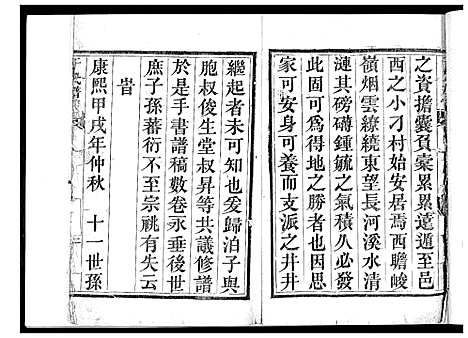 之資擔囊負橐累累遠遁至邑
西之小刁村始安居焉西瞻峻
嶺烟雲繚繞東望長河溪水清
漣其磅礡鍾毓之氣積久必發
此固可爲得地之勝者也因思
家可安身可養而支派之井井
繼起者未可知也爰歸泊子與
胞叔俊生堂叔昇等共議修譜
於是手書譜稿數卷永垂後世
庶子孫蕃衍不至宗祧有失云
旹
康熙甲戌年仲秋 十一世孫